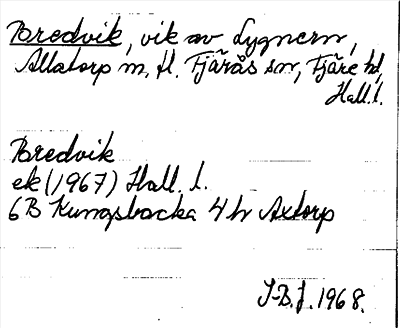 Bredvik, vik av Lygnern,
Allatorp m. fl. Fjärås sn, Fjäre hd,
Hall. l.
Bredvik
ek (1967) Hall. l.
6B Kungsbacka 4 h Axtorp
J-B. J. 1968.